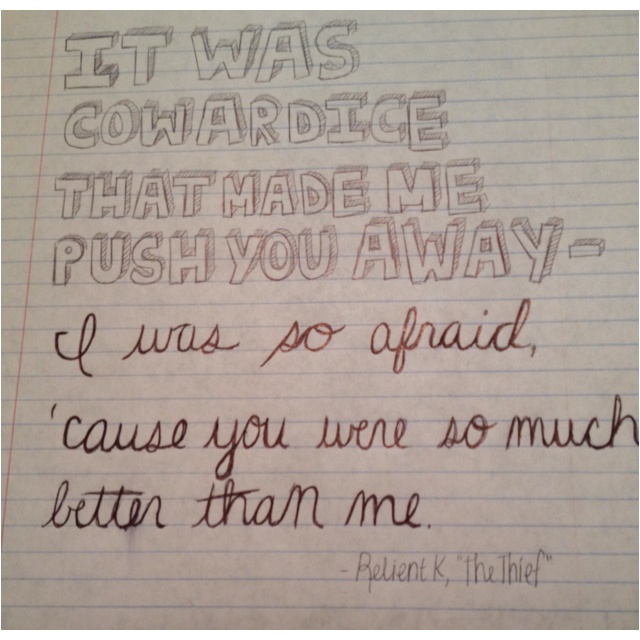 IT WAS
COWARDICE
THAT MADE ME
PUSH YOU AWAY-
I was so afraid,
'cause you were so much
better than me.
- Relient K, "The Thief"